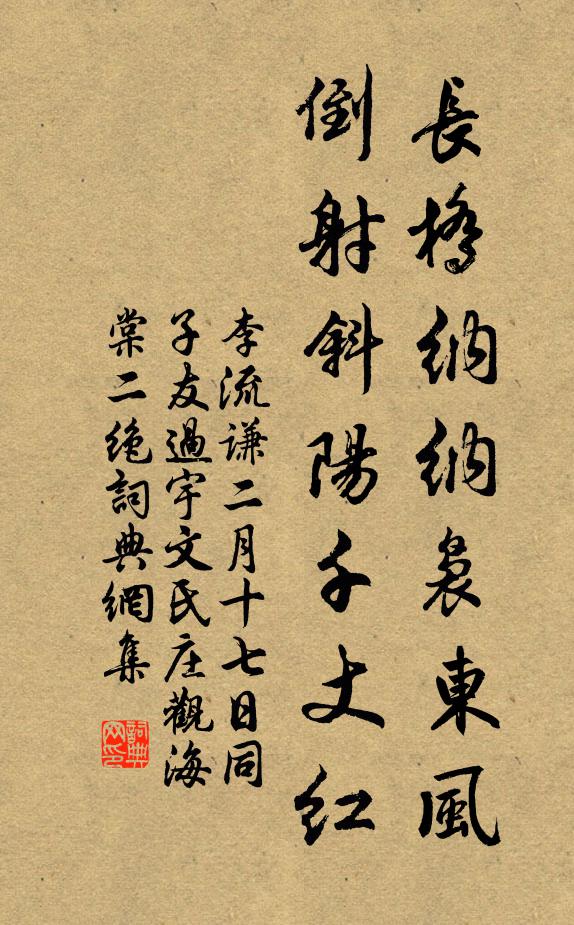 長橋納納裊東風
倒射斜陽千丈紅
李流谦二月十七日同
子友過宇文氏庄觀海
棠二絶詞典網集
詞典
网印